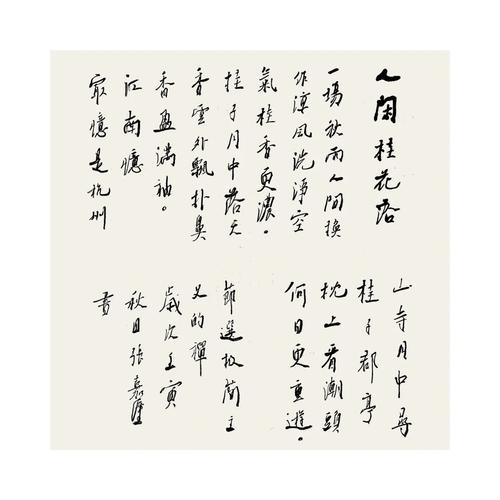 人閑桂花落
一場秋雨人間換
作凉風洗淨空
氣桂香更濃。
桂子月中落天
香雲外飄扑鼻
香盈满袖。
江南憶
最憶是杭州
山寺月中尋
桂子郡亭
枕上看潮頭
何日更重遊。
節選极簡主
义的禪
歲次壬寅
秋日張嘉
書